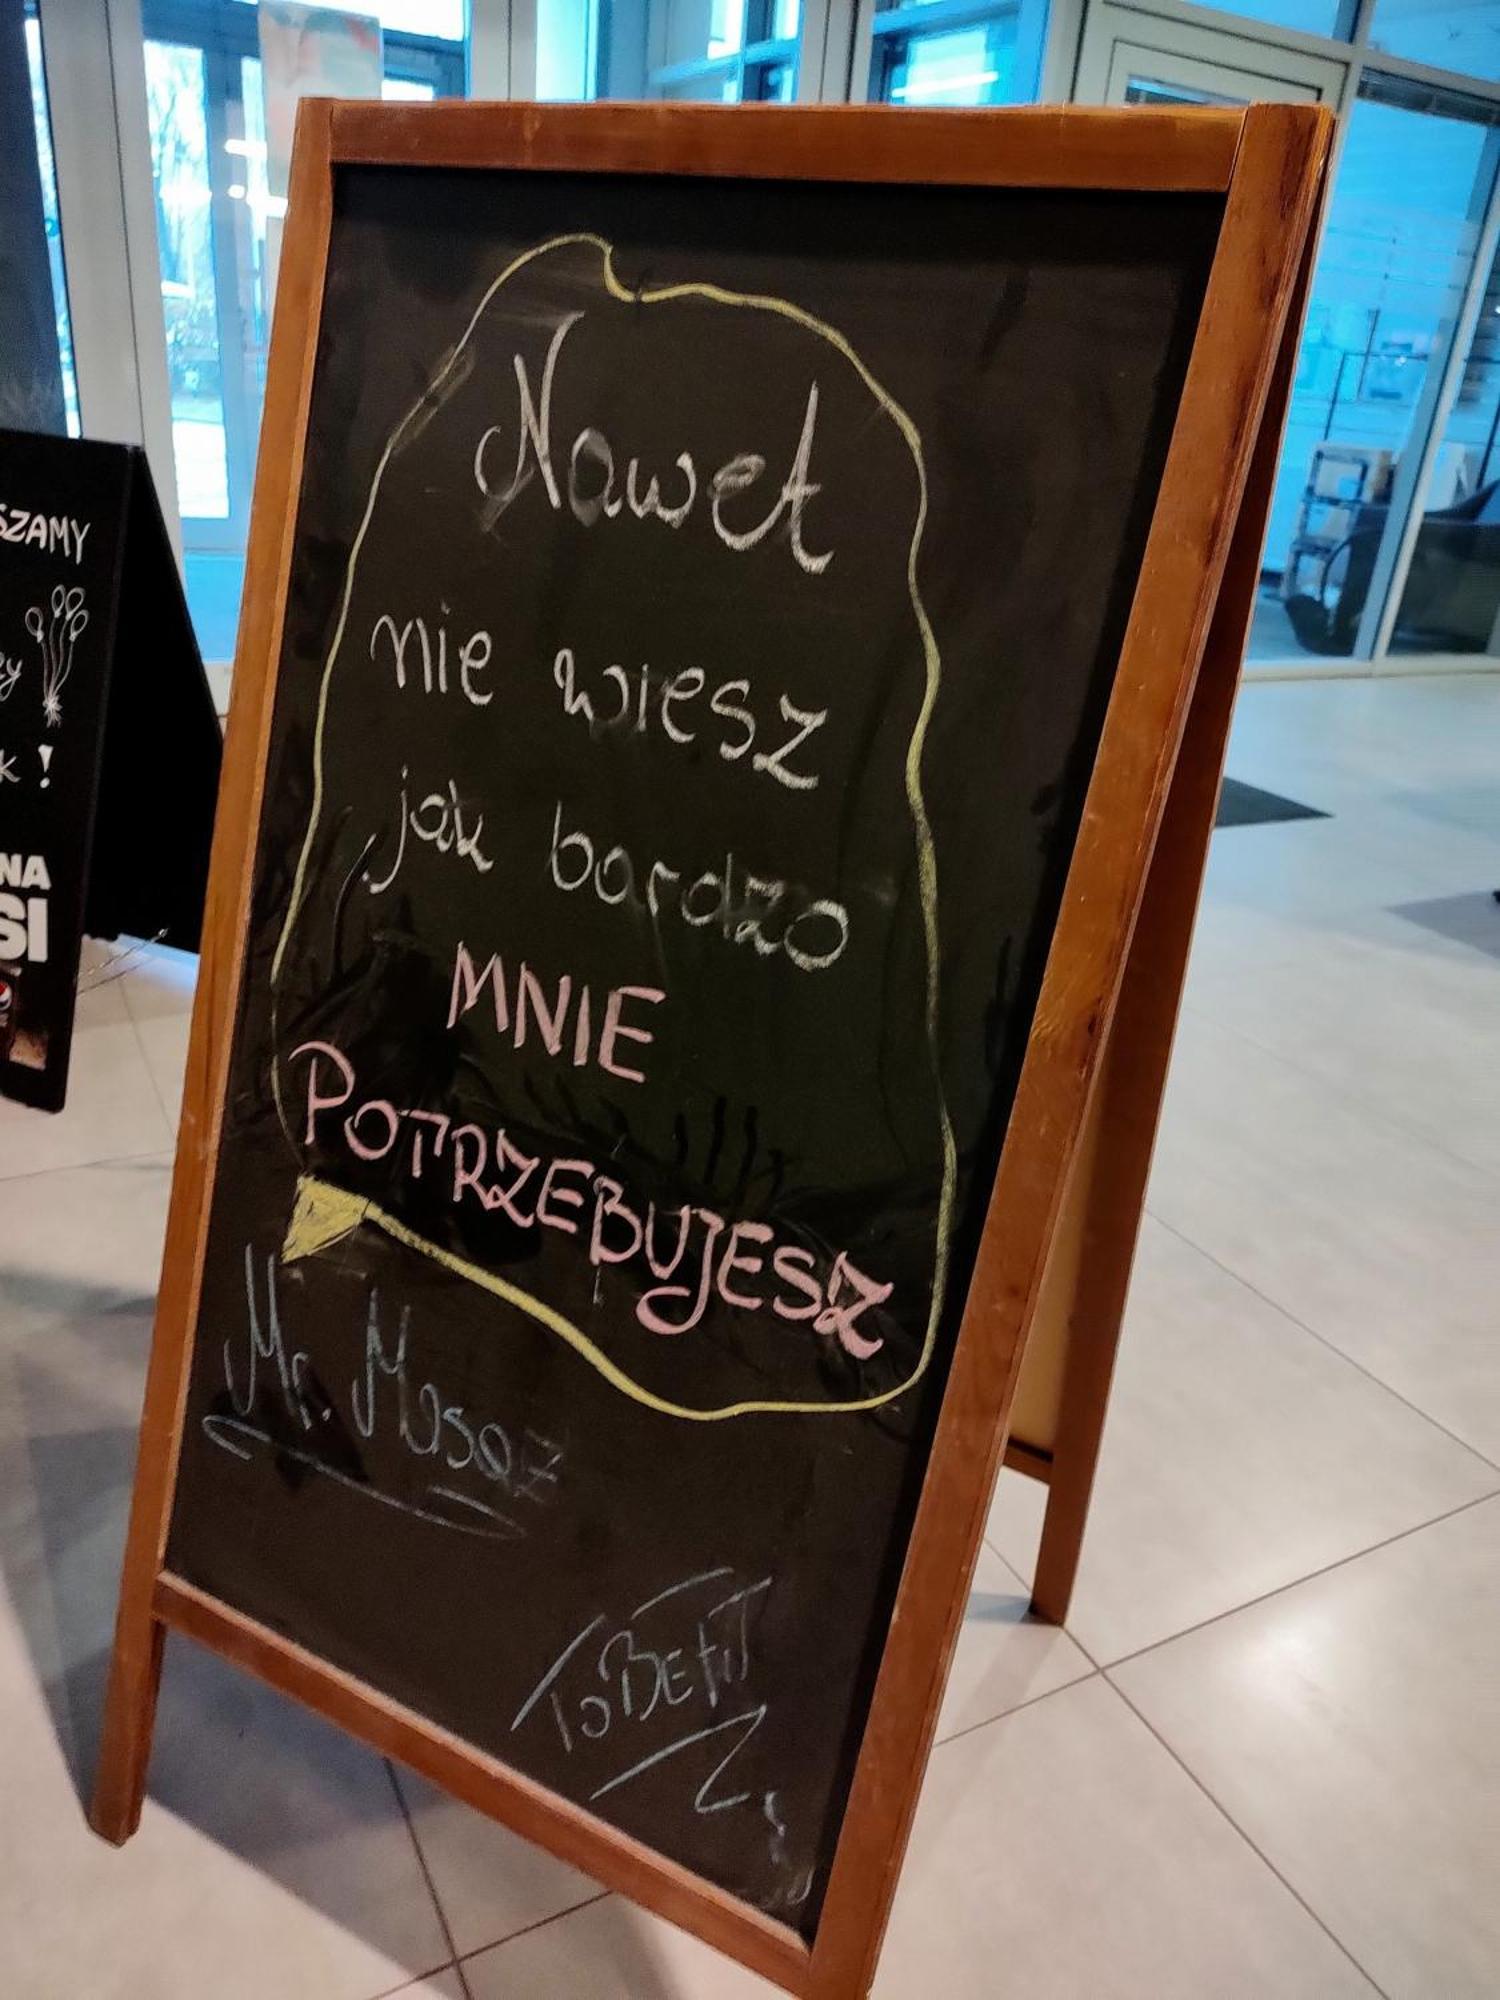 Nawet
nie wiesz
jak bardzo
MNIE
POTRZEBUJESZ
Mr. Masaż
TOBEFIT
SZAMY
k!
NA
SI